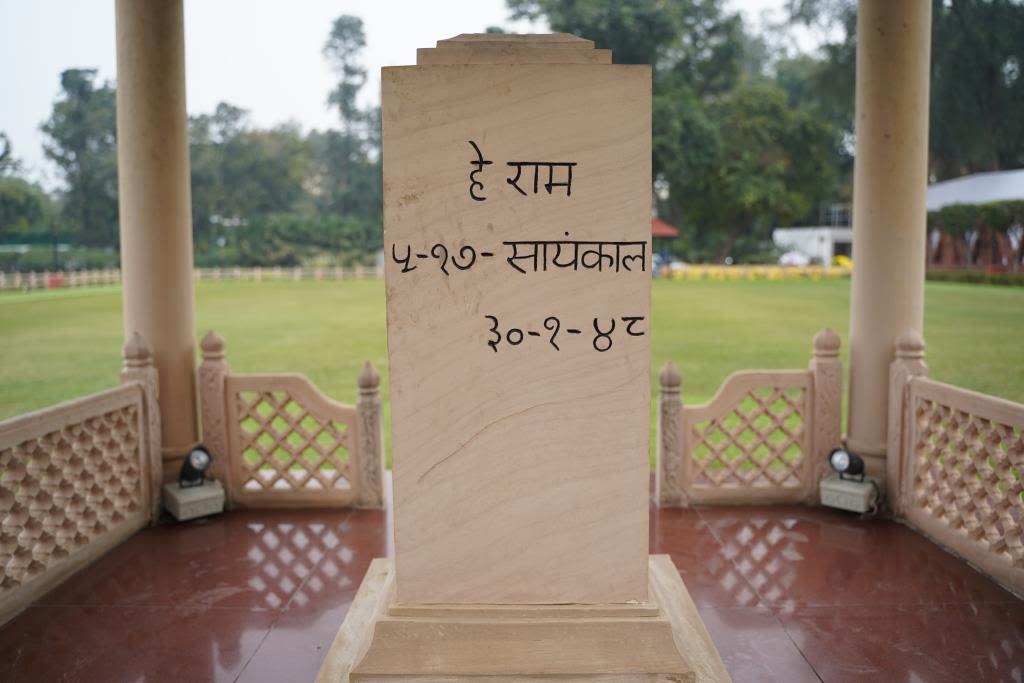 हे राम
५-१७- सायंकाल
३०-१-४८